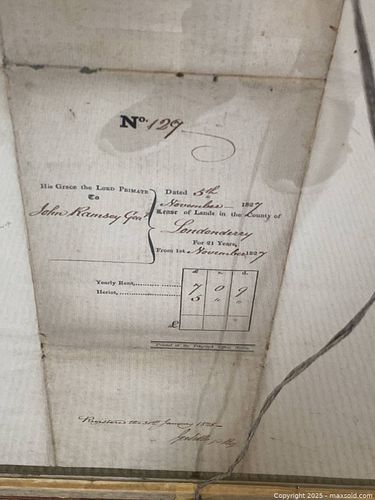 No. 129
His Grace the LORD PRIMATE
To
John Ramsey Gent.
Dated 5th
November 1827
Lease of Lands in the County of
Londonderry
For 21 Years,
From 1st November 1827
£ s. d.
Yearly Rent, 7 0 9
Heriot, 5 " "
£
Printed at the Telegraph Office,
Registered the 30th January
Copyright 2025 - maxsold.com